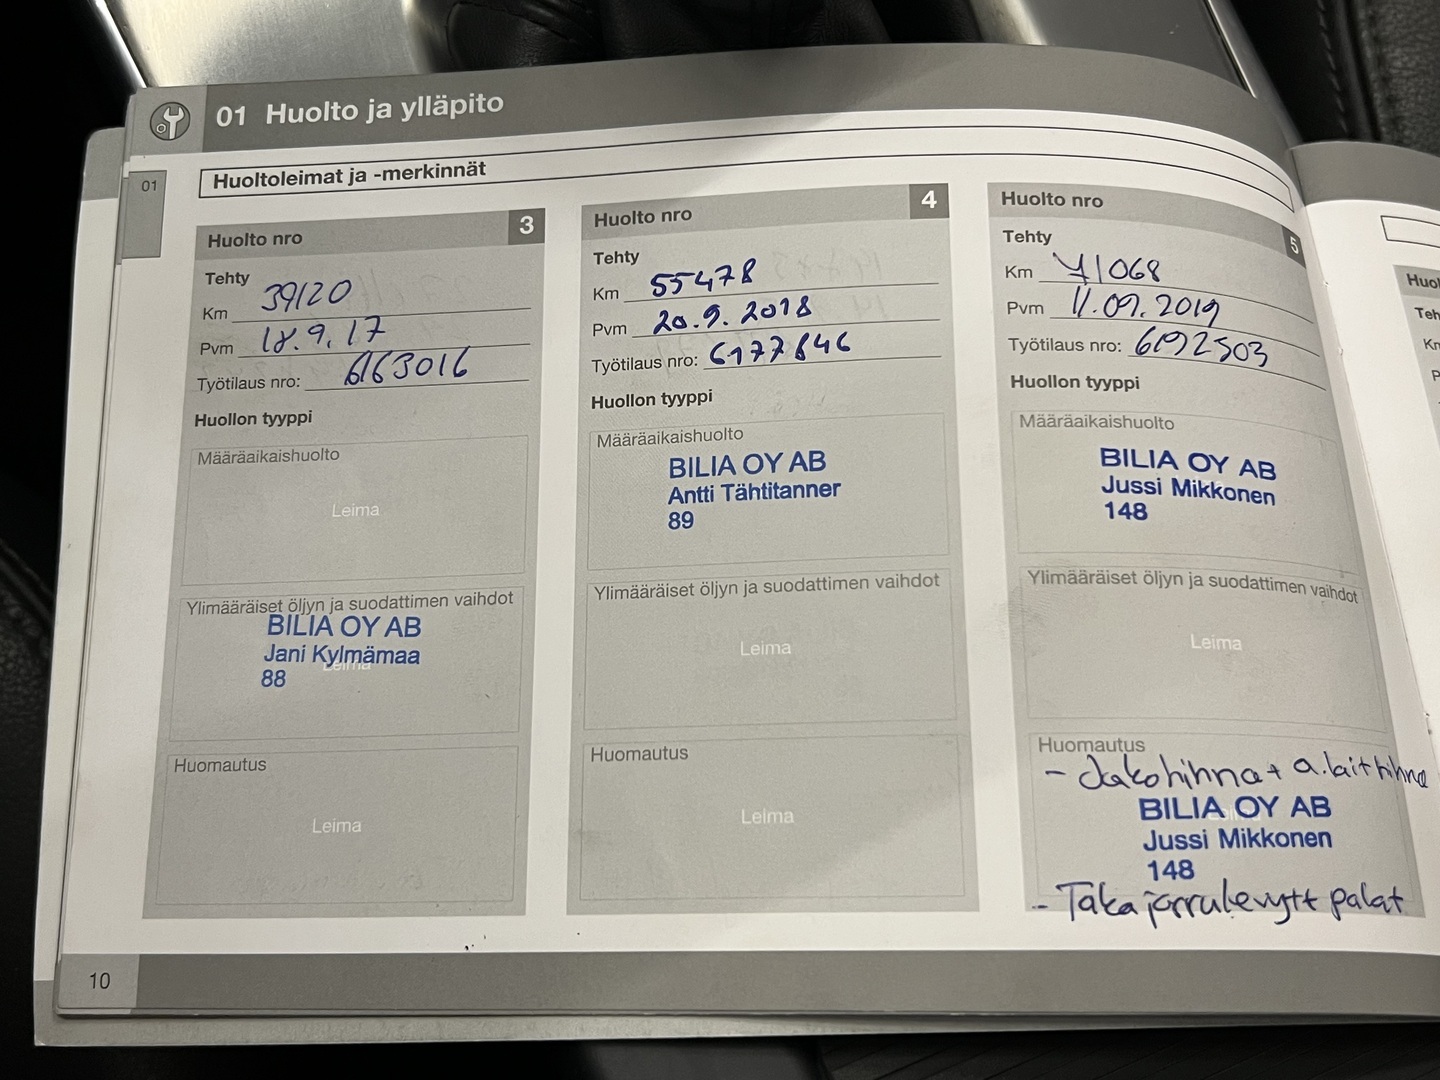 01 Huolto ja ylläpito
01
Huoltoleimat ja -merkinnät
Huolto nro 3
Tehty
Km 39120
Pvm 18.9.17
Työtilaus nro: 6163016
Huollon tyyppi
Määräaikaishuolto
Leima
Ylimääräiset öljyn ja suodattimen vaihdot
BILIA OY AB
Jani Kylmämaa
Leima
88
Huomautus
Leima
Huolto nro 4
Tehty
Km 55478
Pvm 20.9.2018
Työtilaus nro: 6177846
Huollon tyyppi
Määräaikaishuolto
BILIA OY AB
Antti Tähtitanner
89
Ylimääräiset öljyn ja suodattimen vaihdot
Leima
Huomautus
Leima
Huolto nro 5
Tehty
Km 71068
Pvm 11.09.2019
Työtilaus nro: 6192503
Huollon tyyppi
Määräaikaishuolto
BILIA OY AB
Jussi Mikkonen
148
Ylimääräiset öljyn ja suodattimen vaihdot
Leima
Huomautus
- Jakohihna + a.laithihna
BILIA OY AB
Jussi Mikkonen
148
- Takajarrulevyt + palat
10